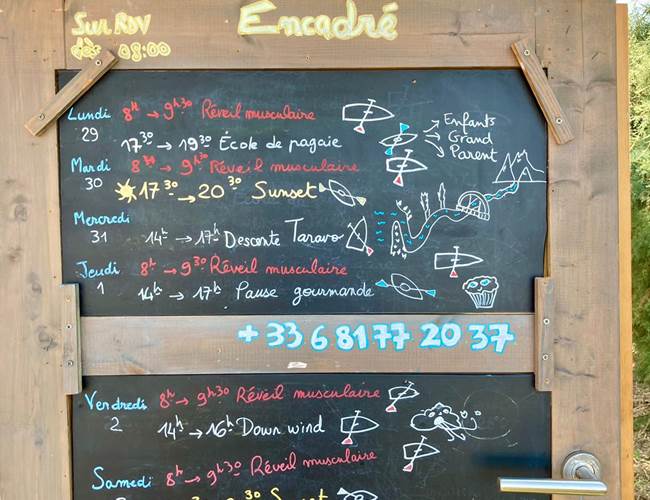 Sur RDV
dès 08:00
Encadré
Lundi 8h → 9h30 Réveil musculaire
29
Enfants
Grand
Parent
17 30 → 19 30 École de pagaie
Mardi 8 30 → 9h30 Réveil musculaire
30
17 30 → 20 30 Sunset
Mercredi
31 14h → 17h Descente Taravo
Jeudi 8h → 9h30 Réveil musculaire
1 14h → 17h Pause gourmande
+33 6 81 77 20 37
Vendredi 8h → 9h30 Réveil musculaire
2 14h → 16h Down wind
Samedi 8h → 9h30 Réveil musculaire
30 Sunset